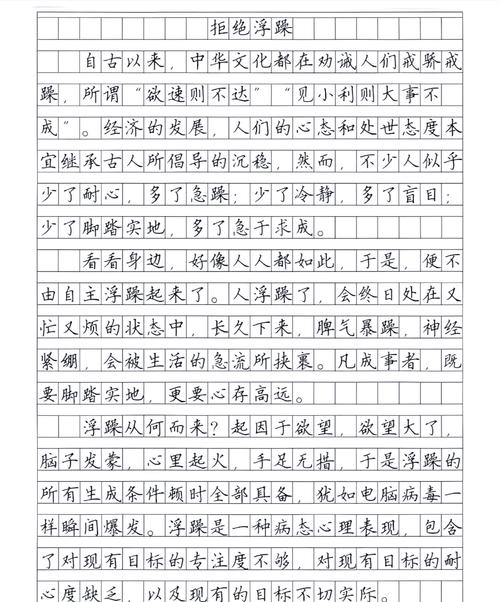 拒绝浮躁
自古以来，中华文化都在劝诫人们戒骄戒
躁，所谓“欲速则不达”“见小利则大事不
成”。经济的发展，人们的心态和处世态度本
宜继承古人所倡导的沉稳，然而，不少人似乎
少了耐心，多了急躁；少了冷静，多了盲目；
少了脚踏实地，多了急于求成。
看看身边，好像人人都如此，于是，便不
由自主浮躁起来了。人浮躁了，会终日处在又
忙又烦的状态中，长久下来，脾气暴躁，神经
紧绷，会被生活的急流所挟裹。凡成事者，既
要脚踏实地，更要心存高远。
浮躁从何而来？起因于欲望，欲望大了，
脑子发蒙，心里起火，手足无措，于是浮躁的
所有生成条件顿时全部具备，犹如电脑病毒一
样瞬间爆发。浮躁是一种病态心理表现，包含
了对现有目标的专注度不够，对现有目标的耐
心度缺乏，以及现有的目标不切实际。